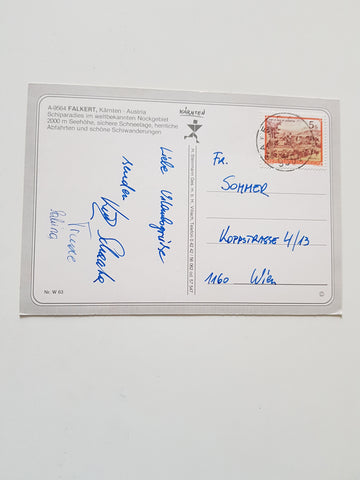 A-9564 FALKERT, Kärnten - Austria
Schiparadies im weltbekannten Nockgebiet
2000 m Seehöhe, sichere Schneelage, herrliche
Abfahrten und schöne Schiwanderungen
KÄRNTEN
Liebe Urlaubsgrüße
senden
Nicole
Sabina
Nr. W 63
5 S
FR.
SOMMER
KOPPSTRASSE 4/13
1160 WIEN
©